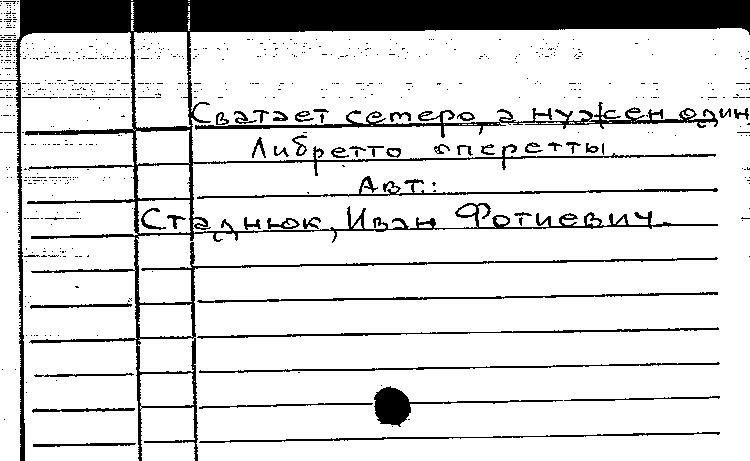 Сватает семеро, а нужен один
Либретто оперетты
Авт.:
Стаднюк, Иван Фотиевич.